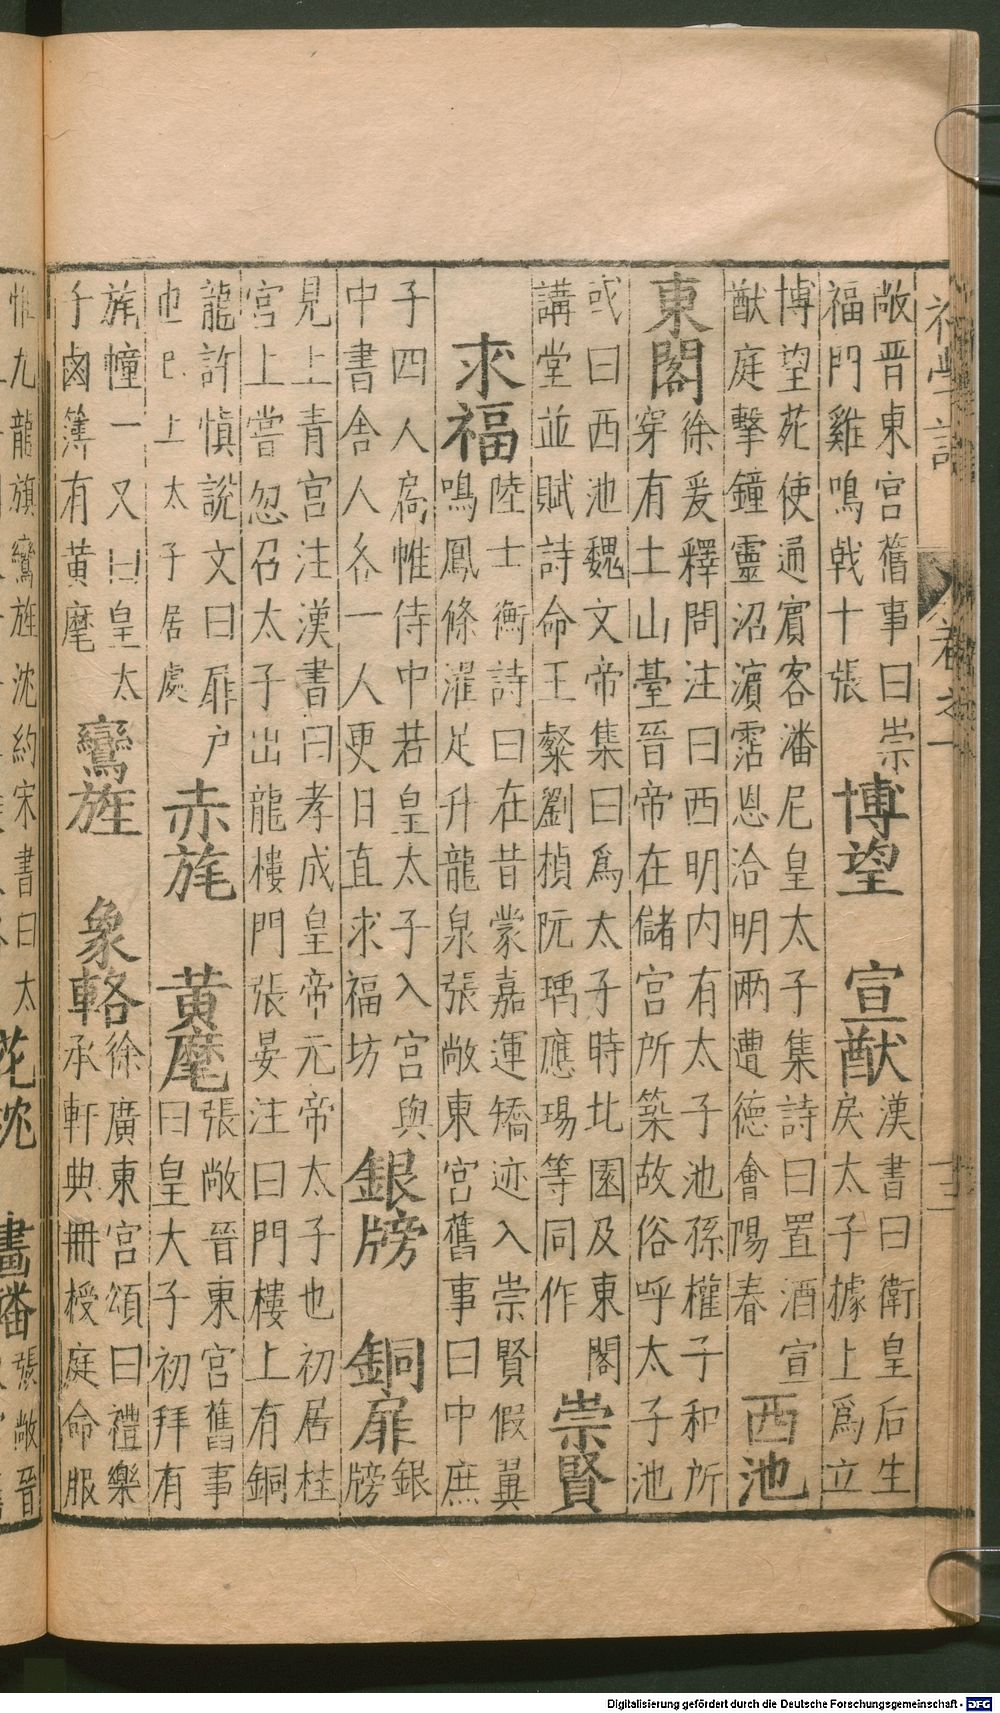 敞晉東宮舊事曰崇
福門雞鳴戟十張
博望　宣猷
漢書曰衛皇后生
戾太子據上爲立
博望苑使通賓客潘尼皇太子集詩曰置酒宣
猷庭擊鐘靈沼濵霑恩洽明兩遭德會陽春
西池
東閣
徐爰釋問注曰西明内有太子池孫權子和所
穿有土山臺晉帝在儲宮所築故俗呼太子池
或曰西池魏文帝集曰爲太子時北園及東閣
講堂並賦詩命王粲劉楨阮瑀應瑒等同作
崇賢
求福
陸士衡詩曰在昔蒙嘉運矯迹入崇賢假翼
鳴鳳條濯足升龍泉張敞東宮舊事曰中庶
子四人扃帷侍中若皇太子入宮與
中書舍人各一人更日直求福坊
銀牓　銅扉
銀
牓
見上青宮注漢書曰孝成皇帝元帝太子也初居桂
宮上嘗忽召太子出龍樓門張晏注曰門樓上有銅
龍許慎說文曰扉户
也巳上太子居處
赤旄　黃麾
張敞晉東宮舊事
曰皇大子初拜有
旄幢一又曰皇太
子鹵簿有黃麾
鸞旌　象輅
徐廣東宮頌曰禮樂
承軒典冊授庭命服
惟九龍旗鸞旌沈約宋書曰太
畫
張敞晉
卷之一
Digitalisierung gefördert durch die Deutsche Forschungsgemeinschaft - DFG